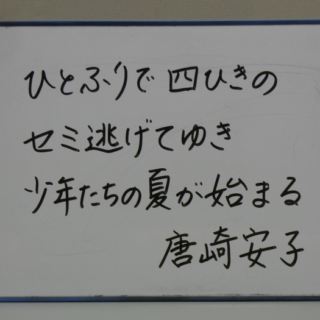 ひとふりで四ひきの
セミ逃げてゆき
少年たちの夏が始まる
唐崎安子